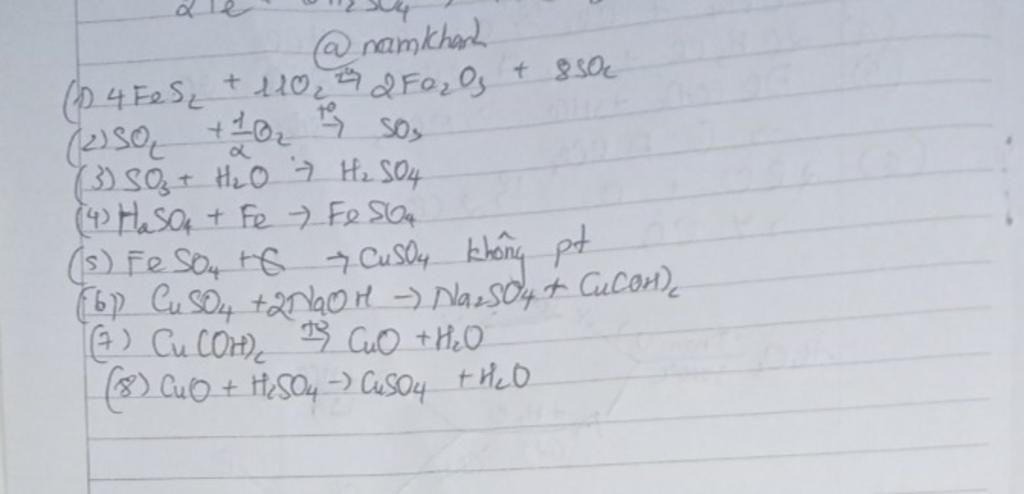 2Fe H2SO4
@namkhanh
(1) 4FeS2 + 11O2 t°→ 2Fe2O3 + 8SO2
(2) SO2 + 1/2 O2 t°→ SO3
(3) SO3 + H2O → H2SO4
(4) H2SO4 + Fe → FeSO4
(5) FeSO4 + → CuSO4 không pt
(6) CuSO4 + 2NaOH → Na2SO4 + Cu(OH)2
(7) Cu(OH)2 t°→ CuO + H2O
(8) CuO + H2SO4 → CuSO4 + H2O